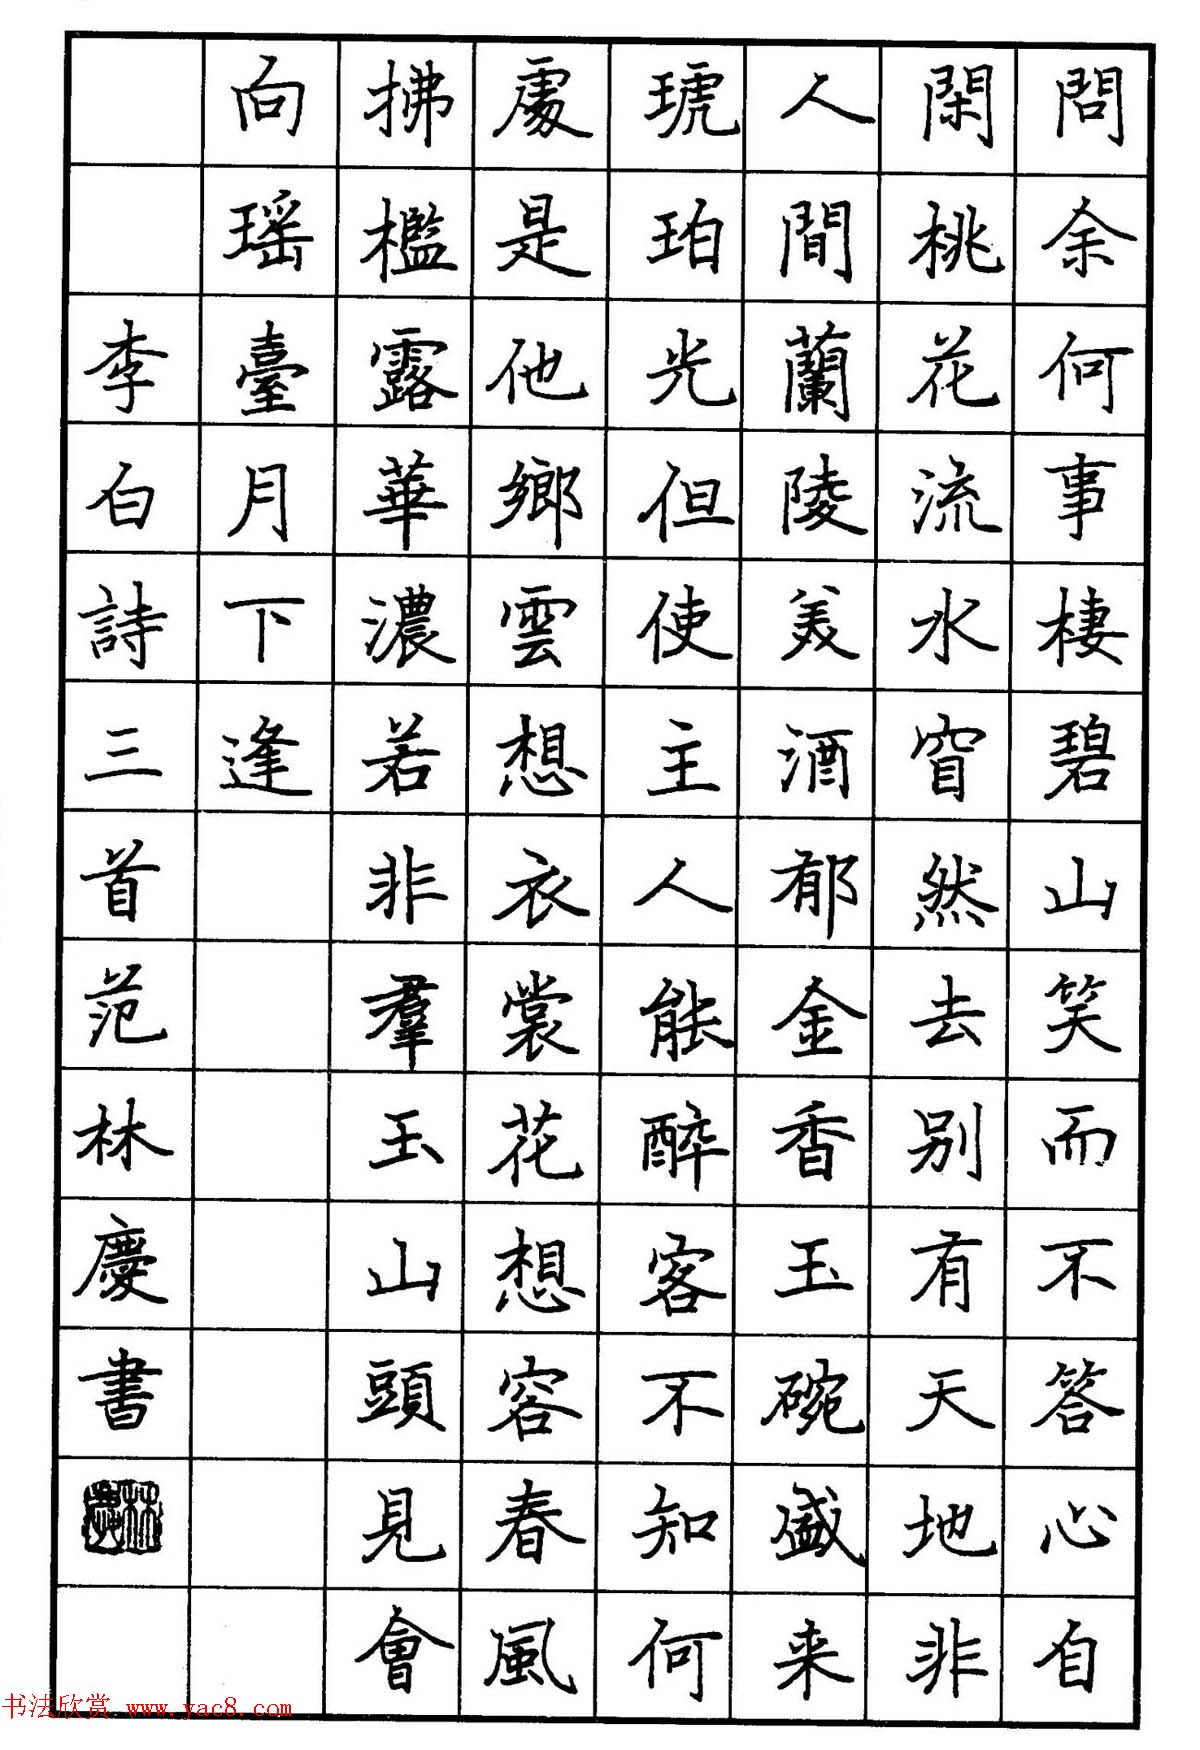 問余何事棲碧山笑而不答心自
閑桃花流水窅然去别有天地非
人間蘭陵美酒郁金香玉碗盛来
琥珀光但使主人能醉客不知何
處是他鄉雲想衣裳花想容春風
拂檻露華濃若非羣玉山頭見會
向瑶臺月下逢
李白詩三首范林慶書
林慶
书法欣赏 www.yac8.com